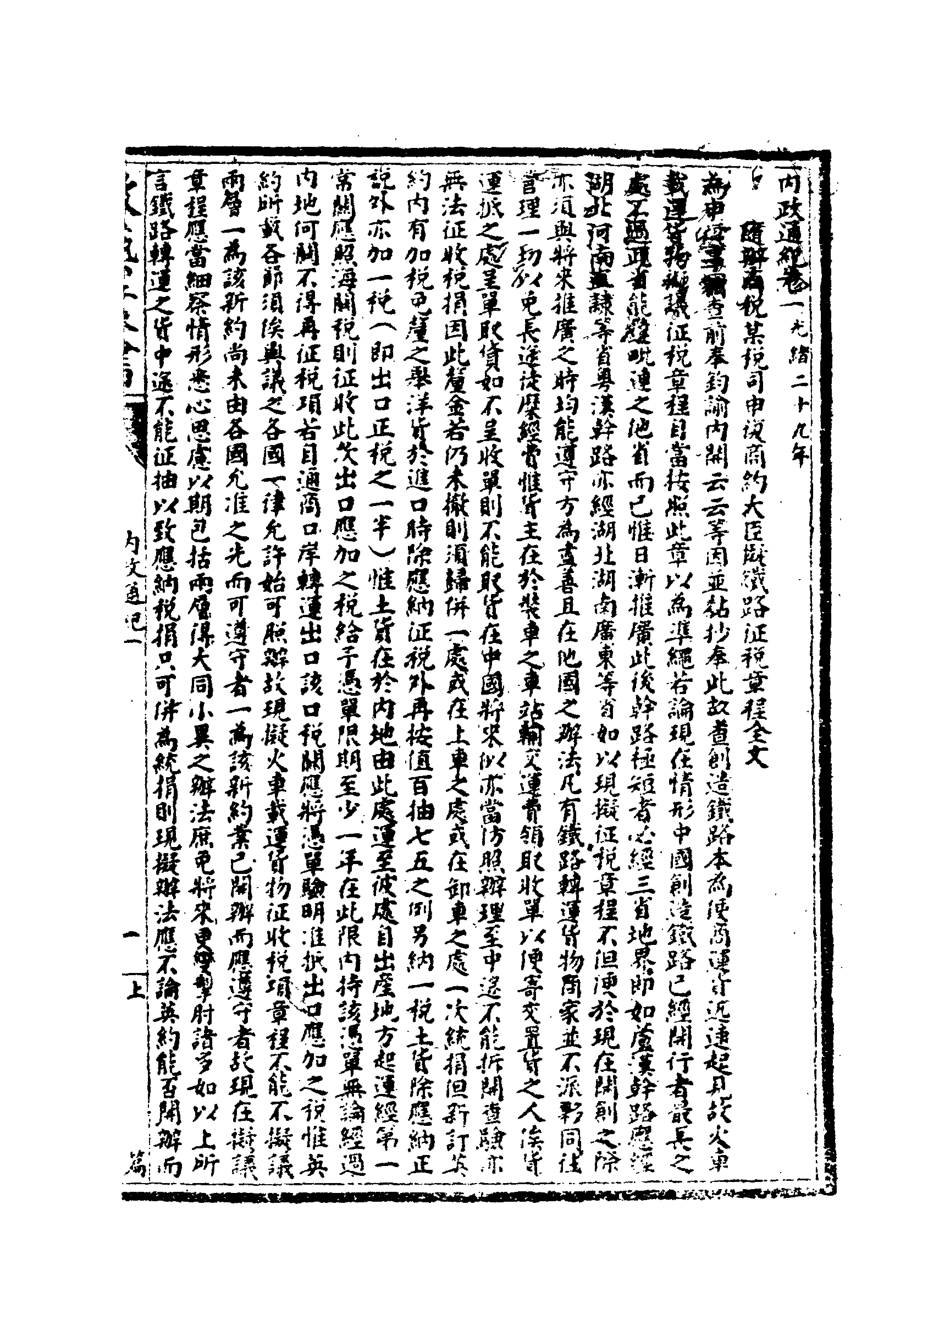 內政通紀卷一 光緒二十九年
辦 稅某稅司申復商約大臣擬鐵路征稅章程全文
為申 查前奉鈞諭內開云云等因並黏抄奉此故查創造鐵路本為便商運貨近遠起見故火車
載運貨物擬議征稅章程自當按照此章以為準繩若論現在情形中國創造鐵路已經開行者最長之
處不過 省能 毗連之他省而已惟日漸推廣此後幹路極短者必經三省地界即如蘆漢幹路應經
湖北河南直隸等省粵漢幹路亦經湖北湖南廣東等省如以現擬征稅章程不但便於現在開創之際
亦須與將來推廣之時均能遵守方為盡善且在他國之辦法凡有鐵路轉運貨物商家並不派夥同往
管理一切以免長途徒糜經費惟貨主在於裝車之車站輸交運費領取收單以便寄交置貨之人俟貨
運抵之處呈單取貨如不呈收單則不能取貨在中國將來似亦當仿照辦理至中途不能拆開查驗亦
無法征收稅捐因此釐金若仍未撤則須歸併一處或在上車之處或在卸車之處一次統捐但新訂英
約內有加稅免釐之舉洋貨於進口時除應納征稅外再按值百抽七五之例另納一稅土貨除應納正
稅外亦加一稅(即出口正稅之一半)惟土貨在於內地由此處運至彼處自出產地方起運經第一
常關應照海關稅則征收此次出口應加之稅給予憑單限期至少一年在此限內持該憑單無論經過
內地何關不得再征稅項若自通商口岸轉運出口該口稅關應將憑單驗明准抵出口應加之稅惟英
約所載各節須俟與議之各國一律允許始可照辦故現擬火車載運貨物征收稅項章程不能不擬議
兩層一為該新約尚未由各國允准之先而可遵守者一為該新約業已開辦而應遵守者故現在擬議
章程應當細察情形悉心思慮以期包括兩層得大同小異之辦法庶免將來更變掣肘諸多如以上所
言鐵路轉運之貨中途不能征抽以致應納稅捐只可併為統捐則現擬辦法應不論英約能否開辦而
內政通紀一
一
上
篇